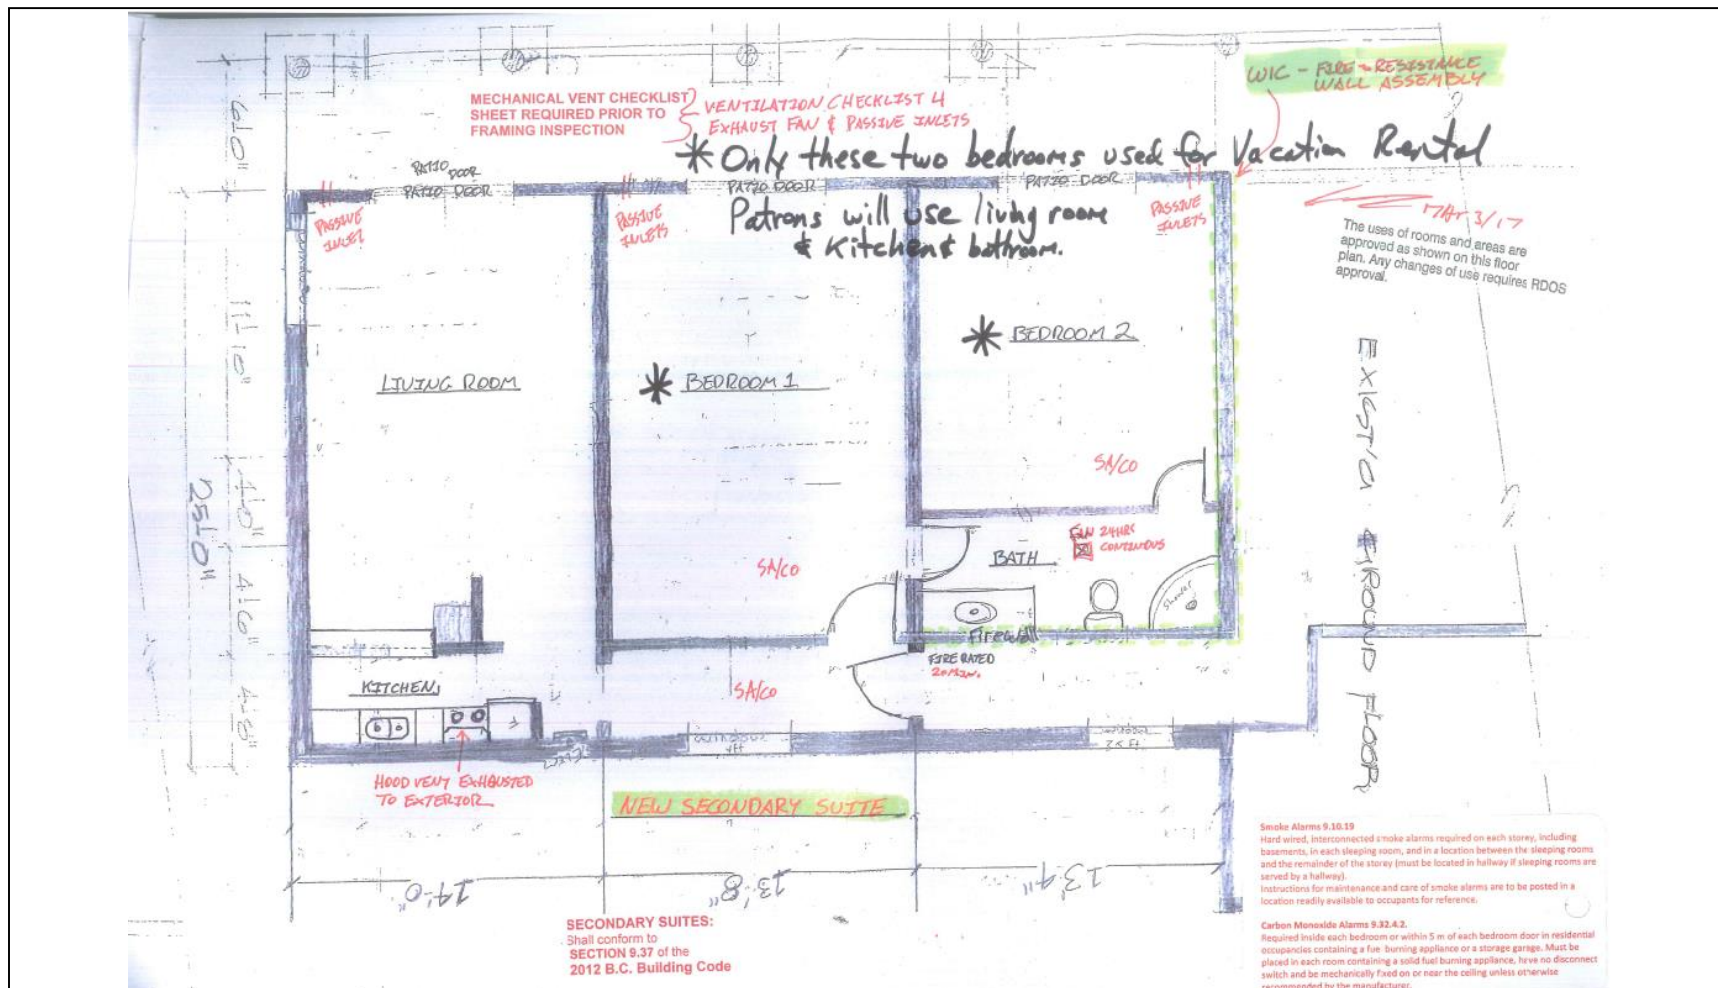 MECHANICAL VENT CHECKLIST
SHEET REQUIRED PRIOR TO
FRAMING INSPECTION
VENTILATION CHECKLIST 4
EXHAUST FAN & PASSIVE INLETS
WIC - FIRE-RESISTANCE
WALL ASSEMBLY
* Only these two bedrooms used for Vacation Rental
Patrons will use living room
& Kitchen & bathroom.
PATIO DOOR
PATIO DOOR
PATIO DOOR
PATIO DOOR
PASSIVE
INLET
PASSIVE
INLETS
PASSIVE
INLETS
MAR 3/17
The uses of rooms and areas are
approved as shown on this floor
plan. Any changes of use requires RDOS
approval.
6'-0"
11'-10"
4'-0"
4'-6"
4'-8"
25'-0"
LIVING ROOM
* BEDROOM 1
* BEDROOM 2
SA/CO
SA/CO
SA/CO
FAN 24HRS
CONTINOUS
BATH
Shower
Firewall
FIRE RATED
20 MIN.
KITCHEN
F
window
4ft
HOOD VENT EXHAUSTED
TO EXTERIOR
NEW SECONDARY SUITE
GROUND FLOOR
14'-0"
13'-8"
SECONDARY SUITES:
Shall conform to
SECTION 9.37 of the
2012 B.C. Building Code
Smoke Alarms 9.10.19
Hard wired, interconnected smoke alarms required on each storey, including
basements, in each sleeping room, and in a location between the sleeping rooms
and the remainder of the storey (must be located in hallway if sleeping rooms are
served by a hallway).
Instructions for maintenance and care of smoke alarms are to be posted in a
location readily available to occupants for reference.
Carbon Monoxide Alarms 9.32.4.2.
Required inside each bedroom or within 5 m of each bedroom door in residential
occupancies containing a fuel burning appliance or a storage garage. Must be
placed in each room containing a solid fuel burning appliance, have no disconnect
switch and be mechanically fixed on or near the ceiling unless otherwise
recommended by the manufacturer.